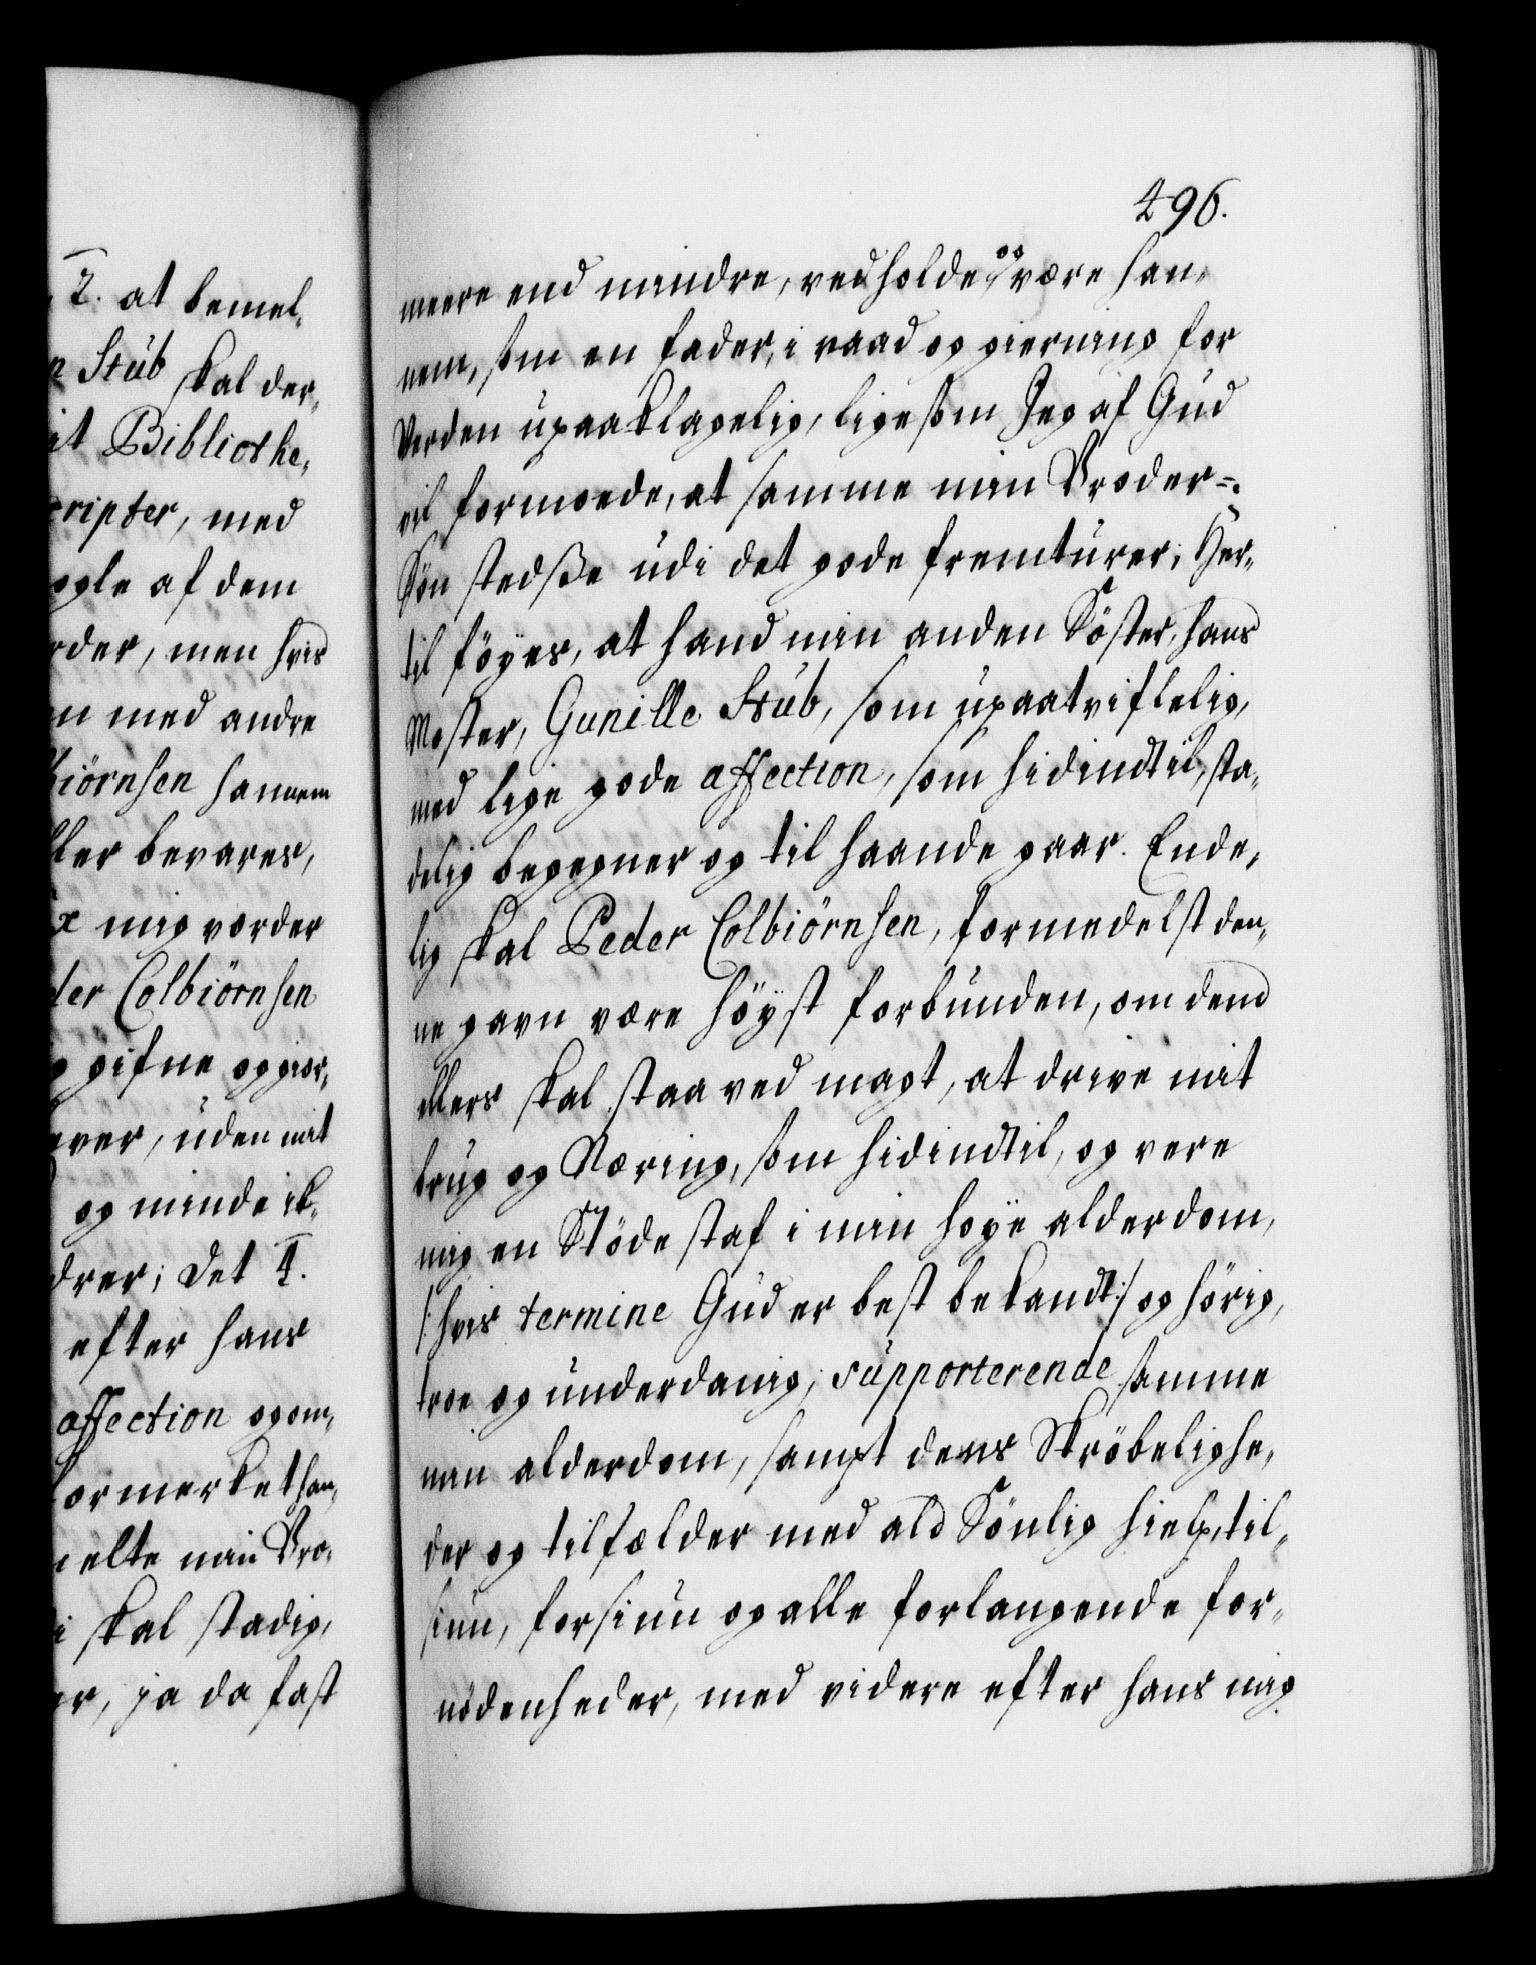 2. at bemel-
Stub skal der-
it Bibliothe-
cripter, med
ogle af dem
rder, men hvis
en med andre
biörnsen hannem
ller bevares,
mig vorder
der Colbiörnsen
gifne og giør-
ever, uden mit
og minde ik-
drer; det 4.
efter hans
affection og om-
formerket han-
melte min Bro-
i skal stadig,
er, ja da fast
496.
meere end mindre, vedholde og være han-
nem, som en fader, i raad og gierning for
Verden upaaklagelig, ligesom Jeg af Gud
vil formoede, at samme min Broder-
Sön stedsße udi det gode fremturer; Her-
til föyes, at hand min anden Söster, hans
Moster, Gunille Stub, som upaatviflelig,
med lige gode affection, som hidindtil, sta-
delig begegner og til haande gaar. Ende-
lig skal Peder Colbiörnsen, formedelst den-
ne gavn være höyst forbunden, om dend
ellers skal staa ved magt, at drive mit
brug og Næring, som hidindtil, og vere
mig en Stöde staf i min høye alderdom,
/: hvis termine Gud er best bekandt :/ og hörig,
troe og underdanig; supporterende samme
min alderdom, sampt dens Skröbelighe-
der og tilfælder med ald Sönlig hielp, til-
siun, forsiun og alle forlangende for-
nödenheder, med videre efter hans mig